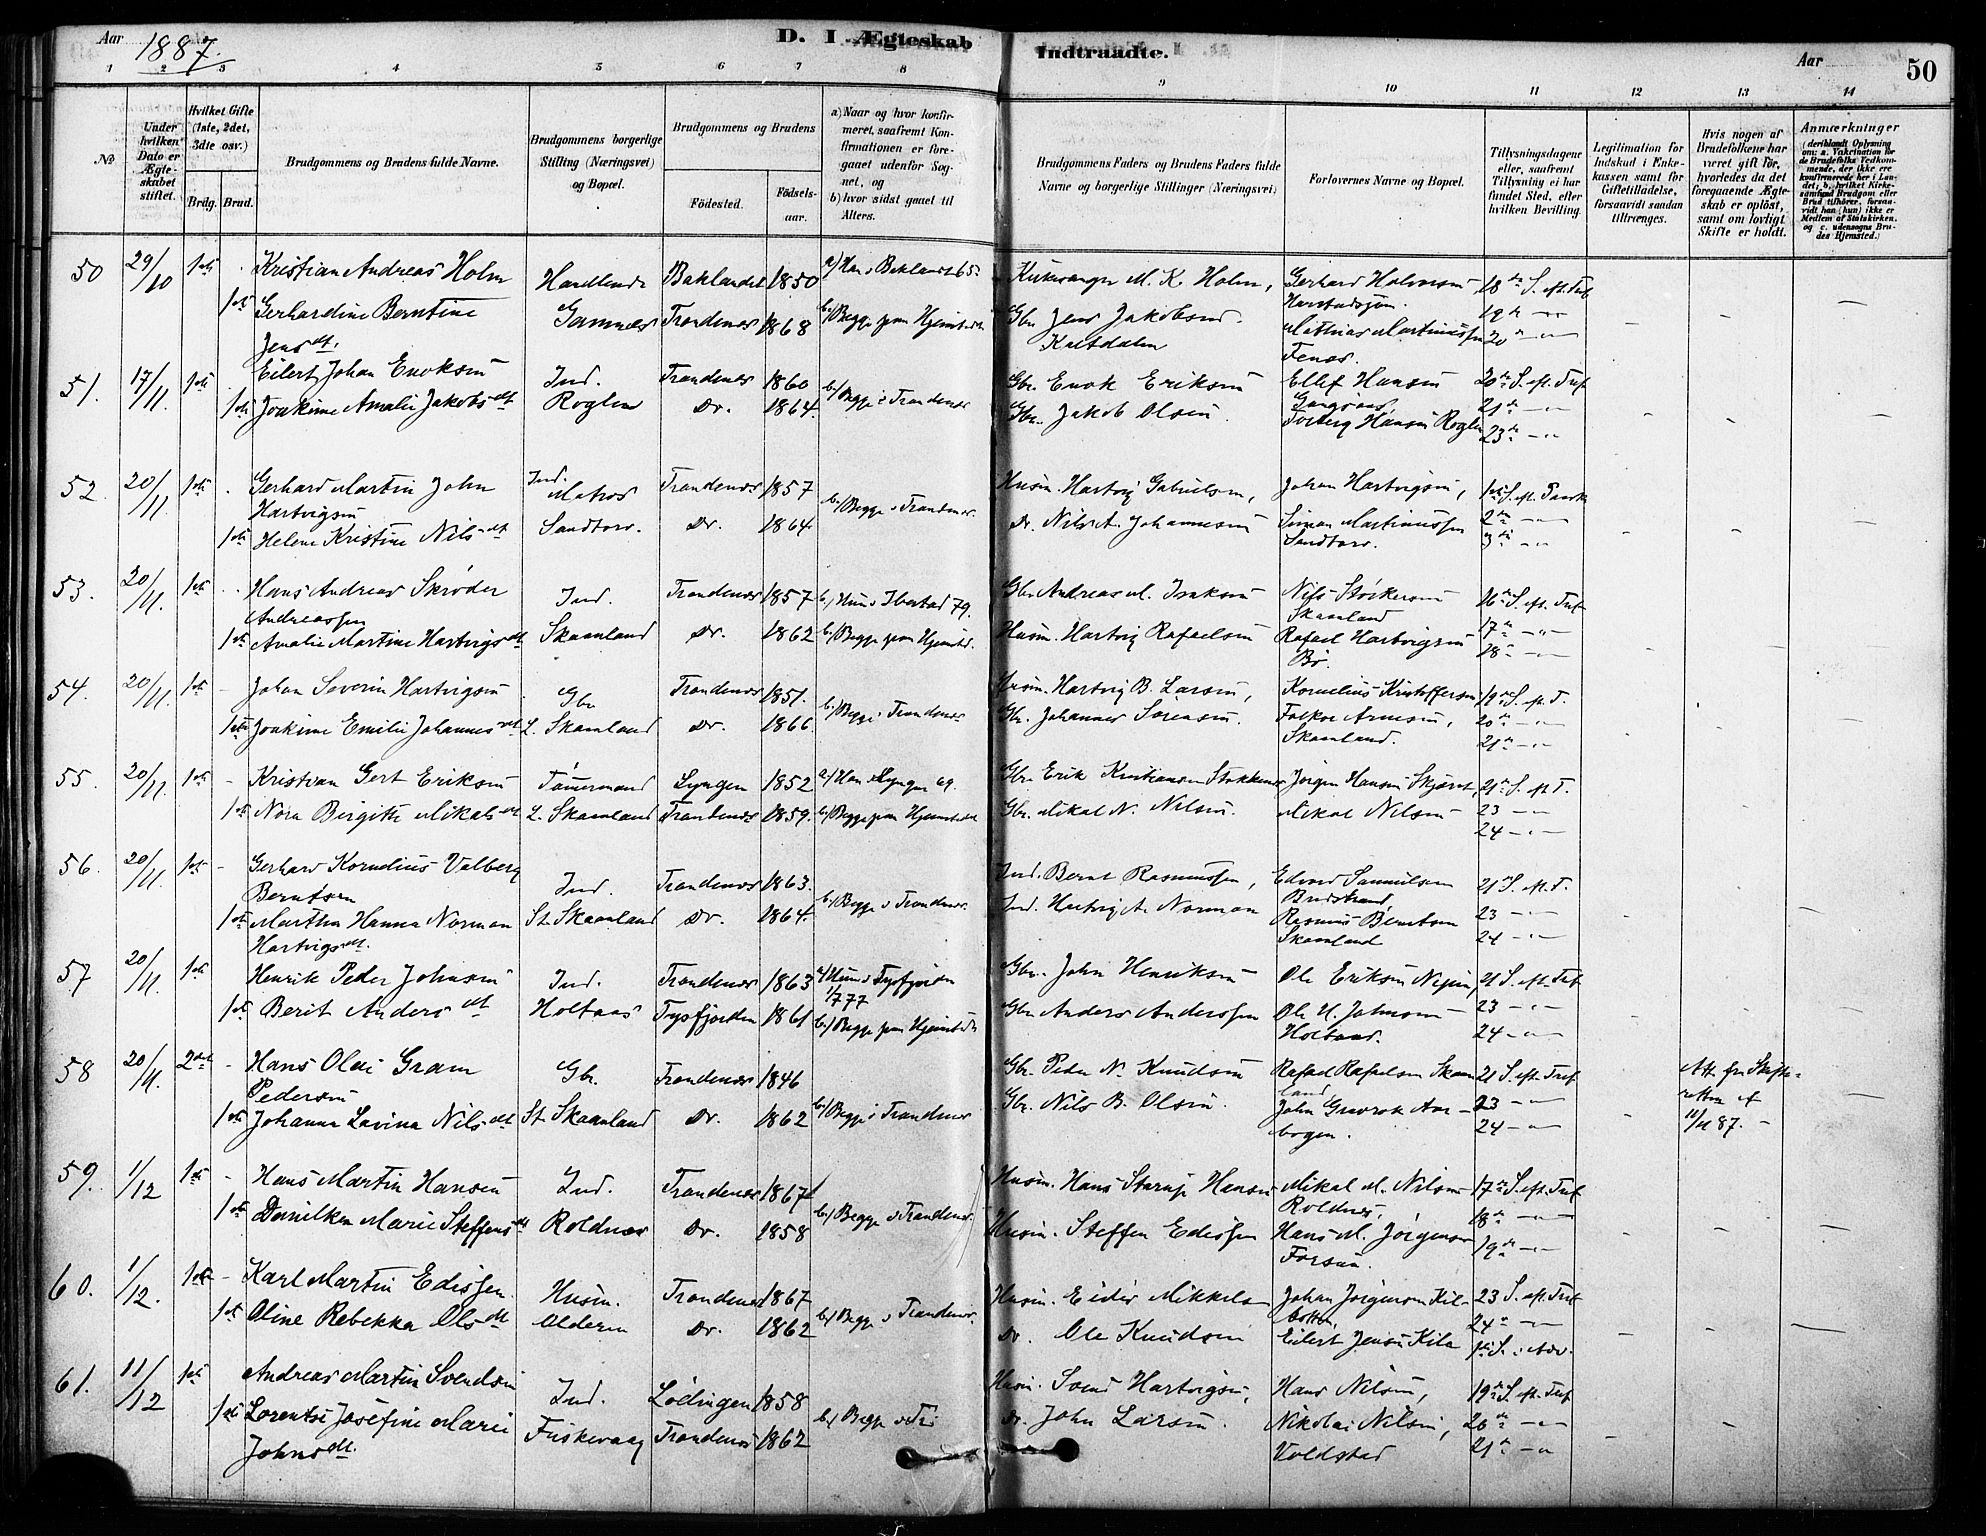 Aar 1887.
D. I Ægteskab Indtraadte.
Aar
50
1 2 3 4 5 6 7 8 9 10 11 12 13 14
№
Under hvilken Dato er Ægteskabet stiftet.
Hvilket Gifte (1ste, 2det, 3dte osv.)
Brdg. Brud.
Brudgommens og Brudens fulde Navne.
Brudgommens borgerlige Stilling (Næringsvei) og Bopæl.
Brudgommens og Brudens
Fødested.
Fødselsaar.
a) Naar og hvor konfirmeret, saafremt Konfirmationen er foregaaet udenfor Sognet, og
b) hvor sidst gaaet til Alters.
Brudgommens Faders og Brudens Faders fulde Navne og borgerlige Stillinger (Næringsvei)
Forlovernes Navne og Bopæl.
Tillysningsdagene eller, saafremt Tillysning ei har fundet Sted, efter hvilken Bevilling.
Legitimation for Indskud i Enkekassen samt for Giftetilladelse, forsaavidt saadan tiltrænges.
Hvis nogen af Brudefolkene har været gift før, hvorledes da det foregaaende Ægteskab er opløst, samt om lovligt Skifte er holdt.
Anmærkninger (deriblandt Oplysning om: a. Vakcination for de Brudefolks Vedkommende, der ikke ere konfirmerede her i Landet; b. hvilket Kirkesamfund Brudgom eller Brud tilhører, forsaavidt han (hun) ikke er Medlem af Statskirken, og c. udensogns Brudes Hjemsted.)
50 29/10 1ste Kristian Andreas Holm Handlende Baklandet 1850 a) Han i Baklandet 65. Kirkesanger M. K. Holm, Gerhard Halvorsen 18de S. eft. Tref.
1ste Gerhardine Berntine Gamnæs Trondenæs 1868 b) Begge paa Hjemstedet Gbr. Jens Jakobsen Harstadsjøen. 19de
Jensdt. Kaltdalen Mathias Martinussen 20de
Tenæs.
51. 17/11. 1ste Eilert Johan Enoksen Ind. Trondenæs 1860 b) Begge i Trondenæs Gbr. Enok Eriksen Ellef Hansen 20de S. eft. Tref
1ste Joakime Amalie Jakobsdt Roglen Do. 1864. Gbr. Jakob Olsen Gangsaas, 21de
Torberg Hansen Roglen 23de
52. 20/11. 1ste Gerhard Martin John Ind. Matros Trondenæs 1857 b) Begge i Trondenæs. Husm. Hartvig Gabrielsen, Johan Hartvigsen, 1ste S. eft. Paaske
Hartvigsen Sandtorv. 2den
1ste Helene Kristine Nilsdt Do. 1864. Do. Nils A. Johannesen Simon Martinussen 3die
Sandtorv.
53. 20/11. 1ste Hans Andreas Skrøder Ind. Trondenæs 1857 Gbr. Andreas M. Isaksen Nils Størkersen 16de S. eft. Tref
Andreassen b) Hun i Ibestad 79. Skaanland 17de
1ste Amalie Martine Hartvigsdt Skaanland Do. 1862 b) Begge paa Hjemstd. Husm. Hartvig Rafaelsen Rafael Hartvigsen 18de
Bø.
54. 20/11. 1ste Johan Severin Hartvigsen Gbr Trondenæs 1851. b) Begge i Trondenæs Husm. Hartvig B. Larsen, Kornelius Kristoffersen 19de S. eft. T.
1ste Joakime Emilie Johannesdt L. Skaanland Do. 1866 Gbr. Johannes Sørensen. Falkor Arnesen, 20de
Skaanland. 21de
55. 20/11. 1ste Kristian Gert Eriksen Tømmermand Lyngen 1852 a) Han i Lyngen 69. Gbr. Erik Kristiansen Stokkenes Jørgen Hansen Skjørst, 21de S. eft T.
1ste Nora Birgitte Mikalsdt L. Skaanland Trondenæs 1859. b) Begge paa Hjemstedet Gbr. Mikal N. Nilsen. Mikal Nilsen 23
24
56. 20/11. 1ste Gerhard Kornelius Valberg Ind. Trondenæs 1863. b) Begge i Trondenæs. Ind. Bernt Rasmussen, Edvard Samuelsen 21 S. eft. T.
Berntsen St. Skaanland Breistrand, 23
1ste Martha Hanna Norman Do. 1864. Ind. Hartvig A. Norman Rasmus Berntsen 24
Hartvigsdt. Skaanland
57 20/11. 1ste Henrik Peder Johnsen Ind. Trondenæs 1863 a) Hun i Tysfjorden 1/7 77 Gbr. John Henriksen Ole Eriksen 21 S. eft. Tref
1ste Berit Andersdt Holtaas Tysfjorden 1861 b) Begge paa Hjemstedet Gbr Anders Anderssen Ole H. Johnsen 23
Holtaas. 24
58 20/11. 2det Hans Olai Gram Gbr. Trondenæs 1846 Gbr. Peder N. Knudsen Rafael Rafaelsen Skaanland 21 S. eft. Tref Att. fra Skifteretten af 11/11 87.
Pedersen
1ste Johanna Lavina Nilsdt St Skaanland Do. 1862 b) Begge i Trondenæs Gbr. Nils B. Olsen. John Gravrok Aarbogen. 23
24
59. 1/12 1ste Hans Martin Hansen Ind. Trondenæs 1867 Husm. Hans Starup Hansen Mikal M. Nilsen 17de S. eft. Tref
1ste Danilken Marie Steffensdt Roldnæs Do. 1858 b) Begge i Trondenæs. Husm. Steffen Edissen Roldnæs, 18de
Hans M. Jørgensen Forsaa. 19de
60. 1/12. 1ste Karl Martin Edissen Husm. Trondenæs 1867 b) Begge i Trondenæs. Husm. Mikkelsen Johan Jørgensen Kilbotten, 23 S. eft. Tref
1ste Oline Rebekka Olsdt Aldern Do. 1862 Do. Ole Knudsen Eilert Jensen Kila 24
1ste S. i Adv.
61. 11/12 1ste Andreas Martin Svendsen Ind. Lødingen 1858 Husm. Svend Hartvigsen, Hans Nilsen, 19de S. eft Tref
1ste Lorentse Josefine Marie Fuskevaag Trondenæs 1862 b) Begge i Tr. Do. John Larsen. Nikolai Nilsen, 20de
Johnsdt. Voldstad 21de